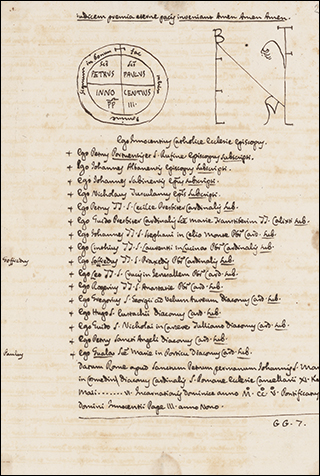 Iudicem premia eterne pacis inveniant Amen Amen Amen.
fac
PETRUS PAULUS
INNO CENTIUS
PP III.
Ego Innocentius Catholice Ecclesie Episcopus.
+ Ego Petrus Portuensis et S. Rufine Episcopus subscripsi.
+ Ego Johannes Albanensis Episcopus subscripsi.
+ Ego Johannes Sabinensis Epus subscripsi.
+ Ego Nicholaus Tusculanus Epus subscripsi.
+ Ego Petrus TT. S. Cecilie Presbiter Cardinalis sub.
+ Ego Guido Presbiter Cardinalis Sce marie Transtiberim TT. Calixti sub.
+ Ego Johannes TT. S. Stephani in Celio Monte Pbr Cardinalis sub.
+ Ego Cinthius TT. S. Laurentii in Lucina Pbr Cardinalis sub.
+ Ego TT. S. Praxedis Pbr Cardinalis sub.
+ Ego Leo TT. S. Crucis in Jerusalem Pbr Card. sub.
+ Ego Rogerius TT. S. Anastasie Pbr Card. sub.
+ Ego Gregorius S. Georgii ad Velum Aureum Diaconus Card. sub.
+ Ego Hugo S. Eustachii Diaconus Card. sub.
+ Ego Guido S. Nicholai in Carcere Tulliano Diaconus Card. sub.
+ Ego Petrus Sancti Angeli Diaconus Card. sub.
+ Ego Gualas Sce Marie in Porticu Diaconus Card. sub.
Datum Rome apud Sanctum Petrum per manum Johannis S. Marie
in Cosmedin Diaconus Cardinalis S. Romane Ecclesie Cancellarii XI. Kal
Maii Incarnationis Dominice anno M. CC. V. Pontificatus
Domini Innocentii Pape III. anno Nono.
G G. 7.